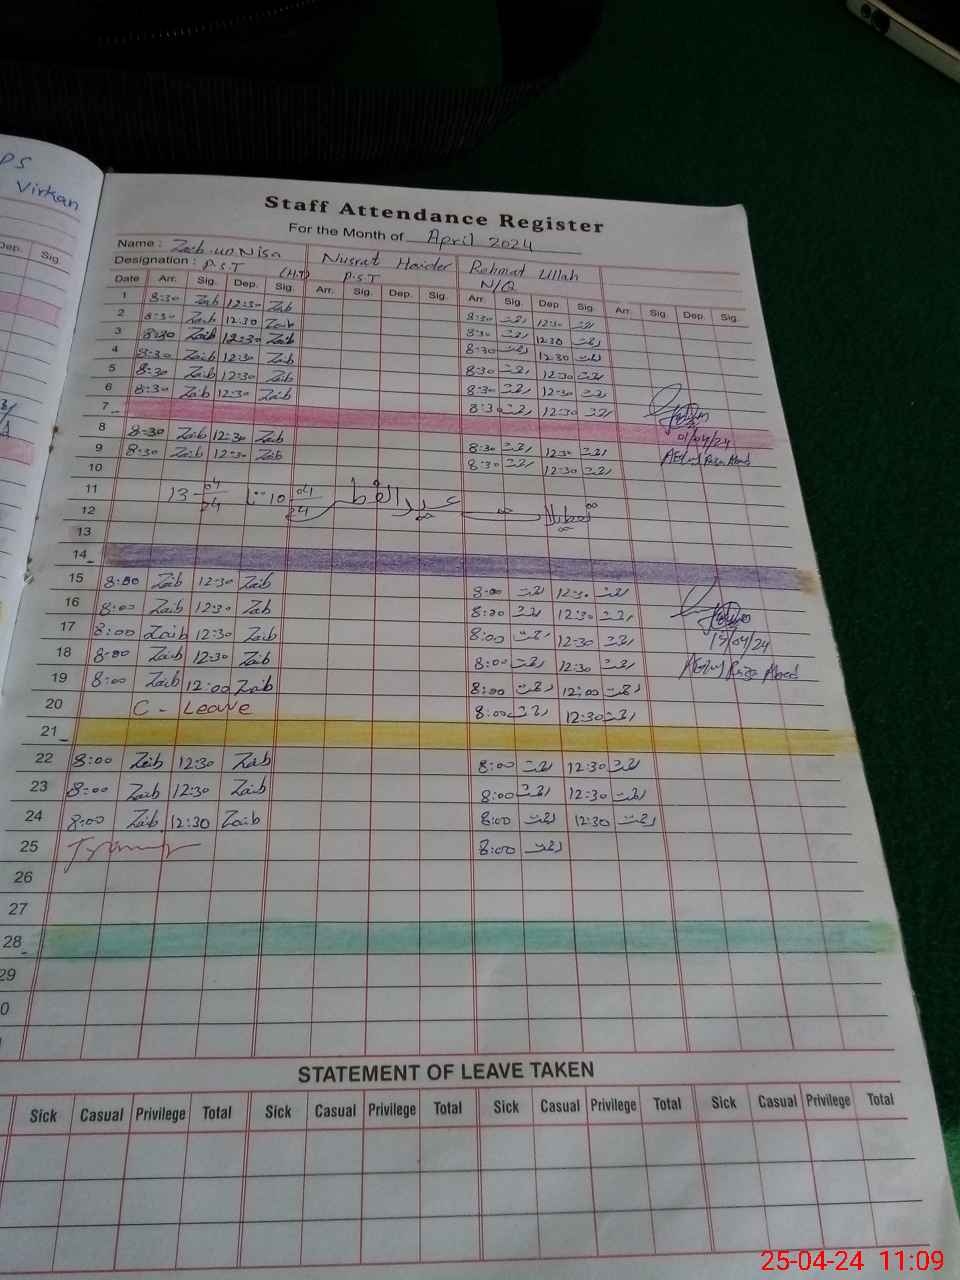 PS
Virkan
Dep. Sig.
Staff Attendance Register
For the Month of April 2024
Name : Zaib-un Nisa Nusrat Haider Rehmat Ullah
Designation : P.S.T (H.T) P.S.T N/Q
Date Arr. Sig. Dep. Sig. Arr. Sig. Dep. Sig. Arr. Sig. Dep. Sig. Arr. Sig. Dep. Sig.
1 8:30 Zaib 12:30 Zaib 8:30 رحمت 12:30 رحمت
2 8:30 Zaib 12.30 Zaib 8:30 رحمت 12:30 رحمت
3 8:30 Zaib 12:30 Zaib 8:30 رحمت 12:30 رحمت
4 8:30 Zaib 12:30 Zaib 8:30 رحمت 12:30 رحمت
5 8:30 Zaib 12:30 Zaib 8:30 رحمت 12:30 رحمت
6 8:30 Zaib 12:30 Zaib 8:30 رحمت 12:30 رحمت
7
01/04/24
8 8:30 Zaib 12:30 Zaib 8:30 رحمت 12:30 رحمت
9 8:30 Zaib 12:30 Zaib 8:30 رحمت 12:30 رحمت
10
11 تعطیلات عید الفطر 10 04/24 تا 13 04/24
12
13
14
15 8:00 Zaib 12:30 Zaib 8:00 رحمت 12:30 رحمت
16 8:00 Zaib 12:30 Zaib 8:00 رحمت 12:30 رحمت
17 8:00 Zaib 12:30 Zaib 8:00 رحمت 12:30 رحمت 15/04/24
18 8:00 Zaib 12:30 Zaib 8:00 رحمت 12:30 رحمت
19 8:00 Zaib 12:00 Zaib 8:00 رحمت 12:00 رحمت
20 C - Leave 8:00 رحمت 12:30 رحمت
21
22 8:00 Zaib 12:30 Zaib 8:00 رحمت 12:30 رحمت
23 8:00 Zaib 12:30 Zaib 8:00 رحمت 12:30 رحمت
24 8:00 Zaib 12:30 Zaib 8:00 رحمت 12:30 رحمت
25 8:00 رحمت
26
27
28
29
0
STATEMENT OF LEAVE TAKEN
Sick Casual Privilege Total Sick Casual Privilege Total Sick Casual Privilege Total Sick Casual Privilege Total
25-04-24 11:09